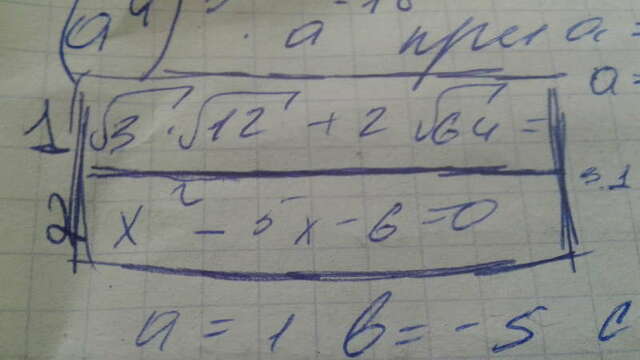 (a⁴) · a при a =
a =
1 √3 · √12 + 2 √64 =
2 x² - 5x - 6 = 0
a = 1 b = -5 c